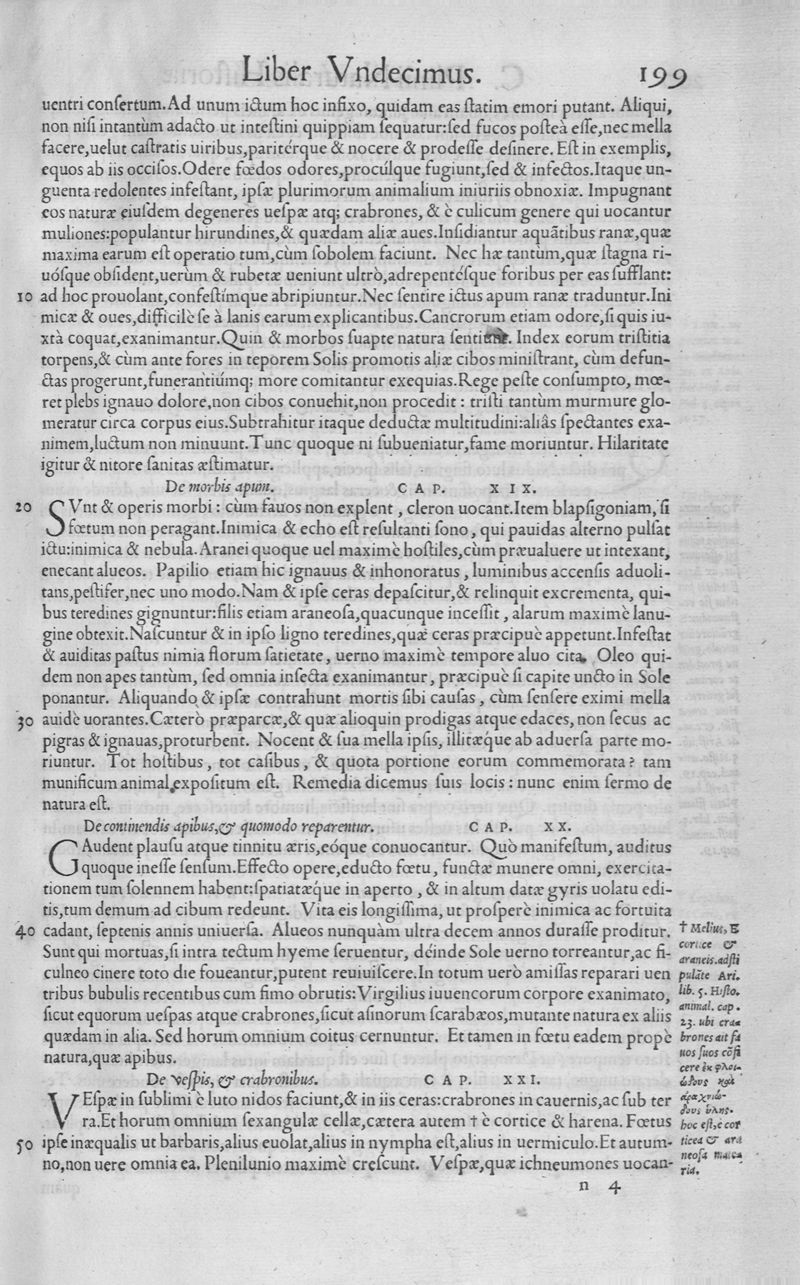 Liber Vndecimus. 199
uentri conſertum. Ad unum ictum hoc infixo, quidam eas ſtatim emori putant. Aliqui,
non niſi intantùm adacto ut inteſtini quippiam ſequatur:ſed fucos poſteà eſſe,nec mella
facere,uelut caſtratis uiribus,paritérque & nocere & prodeſſe deſinere. Eſt in exemplis,
equos ab iis occiſos.Odere fœdos odores,proculque fugiunt,ſed & infectos.Itaque un-
guenta redolentes infeſtant, ipſæ plurimorum animalium iniuriis obnoxiæ. Impugnant
eos naturæ eiuſdem degeneres ueſpæ atq; crabrones, & è culicum genere qui uocantur
muliones:populantur hirundines,& quædam aliæ aues.Inſidiantur aquãtibus ranæ,quæ
maxima earum eſt operatio tum,cùm ſobolem faciunt. Nec hæ tantùm,quæ ſtagna ri-
uóſque obſident,uerùm & rubetæ ueniunt ultrò,adrepentéſque foribus per eas ſufflant:
10 ad hoc prouolant,confeſtímque abripiuntur.Nec ſentire ictus apum ranæ traduntur.Ini
micæ & oues,difficilè ſe à lanis earum explicantibus.Cancrorum etiam odore,ſi quis iu-
xtà coquat,exanimantur.Quin & morbos ſuapte natura Index eorum triſtitia
torpens,& cùm ante fores in teporem Solis promotis aliæ cibos miniſtrant, cùm defun-
ctas progerunt,funerantiúmq; more comitantur exequias.Rege peſte conſumpto, mœ-
ret plebs ignauo dolore,non cibos conuehit,non procedit : triſti tantùm murmure glo-
meratur circa corpus eius.Subtrahitur itaque deductæ multitudini:aliâs ſpectantes exa-
nimem,luctum non minuunt.Tunc quoque ni ſubueniatur,fame moriuntur. Hilaritate
igitur & nitore ſanitas æſtimatur.
De morbis apum. CAP. XIX.
20 SVnt & operis morbi : cùm fauos non explent , cleron uocant.Item blapſigoniam, ſi
fœtum non peragant.Inimica & echo eſt reſultanti ſono , qui pauidas alterno pulſat
ictu:inimica & nebula. Aranei quoque uel maximè hoſtiles,cùm præualuere ut intexant,
enecant alueos. Papilio etiam hic ignauus & inhonoratus , luminibus accenſis aduoli-
tans,peſtifer,nec uno modo.Nam & ipſe ceras depaſcitur,& relinquit excrementa, qui-
bus teredines gignuntur:filis etiam araneoſa,quacunque inceſſit , alarum maximè lanu-
gine obtexit.Naſcuntur & in ipſo ligno teredines,quæ ceras præcipuè appetunt.Infeſtat
& auiditas paſtus nimia florum ſatietate, uerno maximè tempore aluo cita. Oleo qui-
dem non apes tantùm, ſed omnia inſecta exanimantur , præcipuè ſi capite uncto in Sole
ponantur. Aliquando & ipſæ contrahunt mortis ſibi cauſas , cùm ſenſere eximi mella
30 auidè uorantes.Cæterò præparcæ,& quæ alioquin prodigas atque edaces, non ſecus ac
pigras & ignauas,proturbent. Nocent & ſua mella ipſis, illitæque ab aduerſa parte mo-
riuntur. Tot hoſtibus , tot caſibus , & quota portione eorum commemorata ? tam
munificum animal expoſitum eſt. Remedia dicemus ſuis locis : nunc enim ſermo de
natura eſt.
De continendis apibus,& quomodo reparentur. CAP. XX.
GAudent plauſu atque tinnitu æris,eóque conuocantur. Quò manifeſtum, auditus
quoque ineſſe ſenſum.Effecto opere,educto fœtu, functæ munere omni, exercita-
tionem tum ſolennem habent:ſpatiatǽque in aperto , & in altum datæ gyris uolatu edi-
tis,tum demum ad cibum redeunt. Vita eis longiſſima, ut proſperè inimica ac fortuita
40 cadant, ſeptenis annis uniuerſa. Alueos nunquàm ultra decem annos duraſſe proditur.
Sunt qui mortuas,ſi intra tectum hyeme ſeruentur, déinde Sole uerno torreantur,ac fi-
culneo cinere toto die foueantur,putent reuiuiſcere.In totum uerò amiſſas reparari uen
tribus bubulis recentibus cum fimo obrutis:Virgilius iuuencorum corpore exanimato,
ſicut equorum ueſpas atque crabrones,ſicut aſinorum ſcarabæos,mutante natura ex aliis
quædam in alia. Sed horum omnium coitus cernuntur. Et tamen in fœtu eadem propè
natura,quæ apibus.
De veſpis, & crabronibus. CAP. XXI.
VEſpæ in ſublimi è luto nidos faciunt,& in iis ceras:crabrones in cauernis,ac ſub ter
ra.Et horum omnium ſexangulæ cellæ,cætera autem † è cortice & harena. Fœtus
50 ipſe inæqualis ut barbaris,alius euolat,alius in nympha eſt,alius in uermiculo.Et autum-
no,non uere omnia ea. Plenilunio maximè creſcunt. Veſpæ,quæ ichneumones uocan-
n 4
† Melius, E
cortice &
araneis.adſti
pulãte Ari.
lib. 5. Hiſto.
animal. cap.
23. ubi cra
brones ait fa
uos ſuos cõfi
cere ἐκ φλοι-
ώδους καὶ
ἀραχνιώ-
δους ὕλης.
hoc eſt,è cor
ticea & ara
neoſa mate
ria.